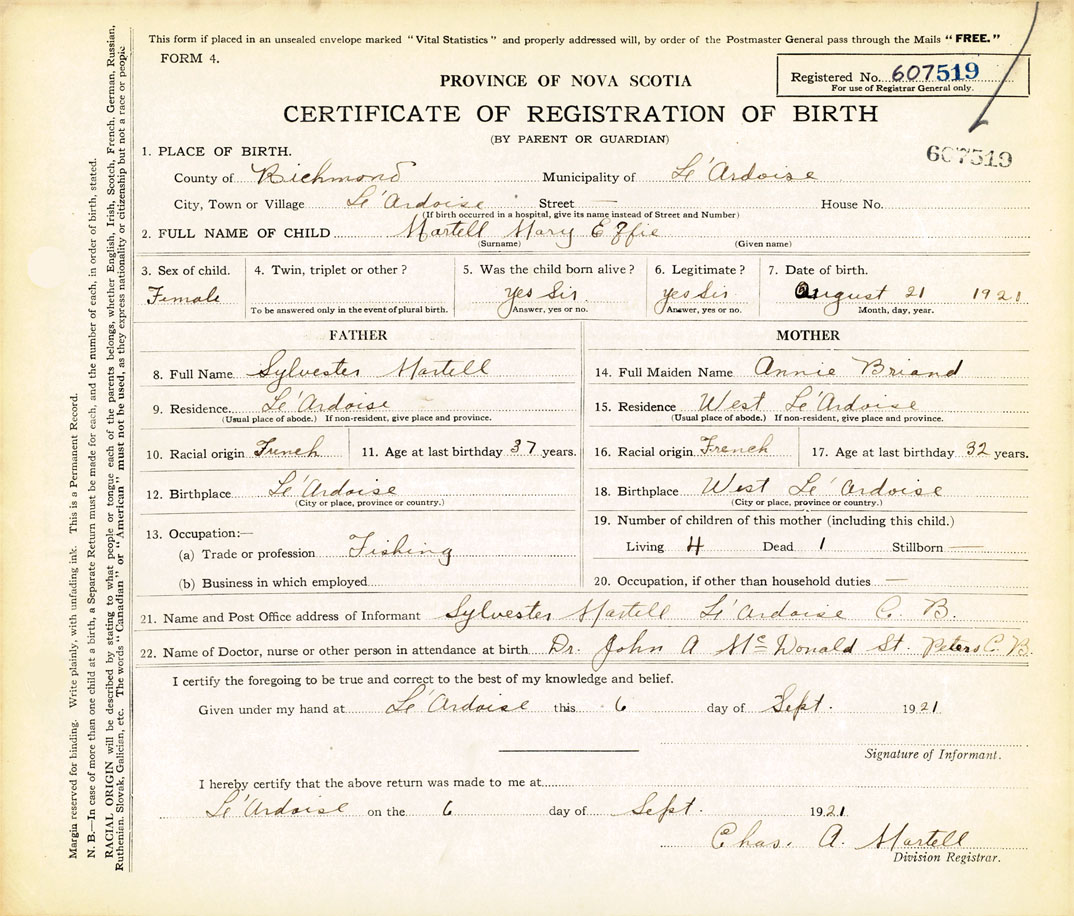 This form if placed in an unsealed envelope marked "Vital Statistics" and properly addressed will, by order of the Postmaster General pass through the Mails "FREE."
FORM 4.
Registered No. 607519
For use of Registrar General only.
PROVINCE OF NOVA SCOTIA
CERTIFICATE OF REGISTRATION OF BIRTH
(BY PARENT OR GUARDIAN)
607519
1. PLACE OF BIRTH.
County of Richmond Municipality of Le'Ardoise
City, Town or Village Le'Ardoise Street — House No.
(If birth occurred in a hospital, give its name instead of Street and Number)
2. FULL NAME OF CHILD Martell Mary Effie
(Surname) (Given name)
3. Sex of child. Female
4. Twin, triplet or other?
To be answered only in the event of plural birth.
5. Was the child born alive? yes Sir.
Answer, yes or no.
6. Legitimate? yes Sir
Answer, yes or no.
7. Date of birth. August 21 1921
Month, day, year.
FATHER
8. Full Name Sylvester Martell
9. Residence Le'Ardoise
(Usual place of abode.) If non-resident, give place and province.
10. Racial origin French 11. Age at last birthday 37 years.
12. Birthplace Le'Ardoise
(City or place, province or country.)
13. Occupation:—
(a) Trade or profession Fishing
(b) Business in which employed
MOTHER
14. Full Maiden Name Annie Briand
15. Residence West Le'Ardoise
(Usual place of abode.) If non-resident, give place and province.
16. Racial origin French 17. Age at last birthday 32 years.
18. Birthplace West Le'Ardoise
(City or place, province or country.)
19. Number of children of this mother (including this child.)
Living 4 Dead 1 Stillborn —
20. Occupation, if other than household duties —
21. Name and Post Office address of Informant Sylvester Martell Le'Ardoise C. B.
22. Name of Doctor, nurse or other person in attendance at birth Dr. John A McDonald St. Peters C. B.
I certify the foregoing to be true and correct to the best of my knowledge and belief.
Given under my hand at Le'Ardoise this 6 day of Sept. 1921
Signature of Informant.
I hereby certify that the above return was made to me at
Le'Ardoise on the 6 day of Sept. 1921
Chas. A. Martell
Division Registrar.
Margin reserved for binding. Write plainly, with unfading ink. This is a Permanent Record.
N. B.—In case of more than one child at a birth, a Separate Return must be made for each, and the number of each, in order of birth, stated.
RACIAL ORIGIN will be described by stating to what people or tongue each of the parents belongs, whether English, Irish, Scotch, French, German, Russian,
Ruthenian, Slovak, Galician, etc. The words "Canadian" or "American" must not be used, as they express nationality or citizenship but not a race or people